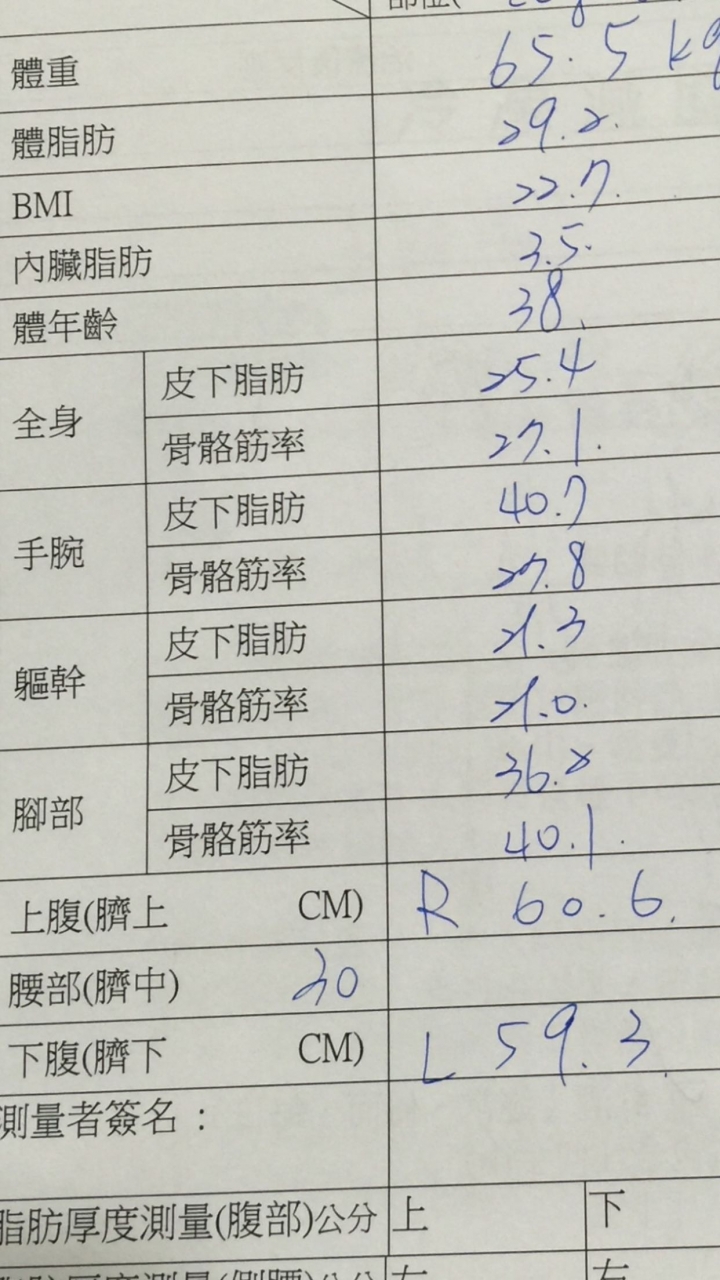 部位(
體重 65.5 kg
體脂肪 29.2
BMI 22.7
內臟脂肪 3.5
體年齡 38
全身 皮下脂肪 25.4
骨骼筋率 27.1
手腕 皮下脂肪 40.7
骨骼筋率 27.8
軀幹 皮下脂肪 21.3
骨骼筋率 21.0
腳部 皮下脂肪 36.2
骨骼筋率 40.1
上腹(臍上 CM) R 60.6
腰部(臍中) 30
下腹(臍下 CM) L 59.3
測量者簽名：
脂肪厚度測量(腹部)公分 上 下